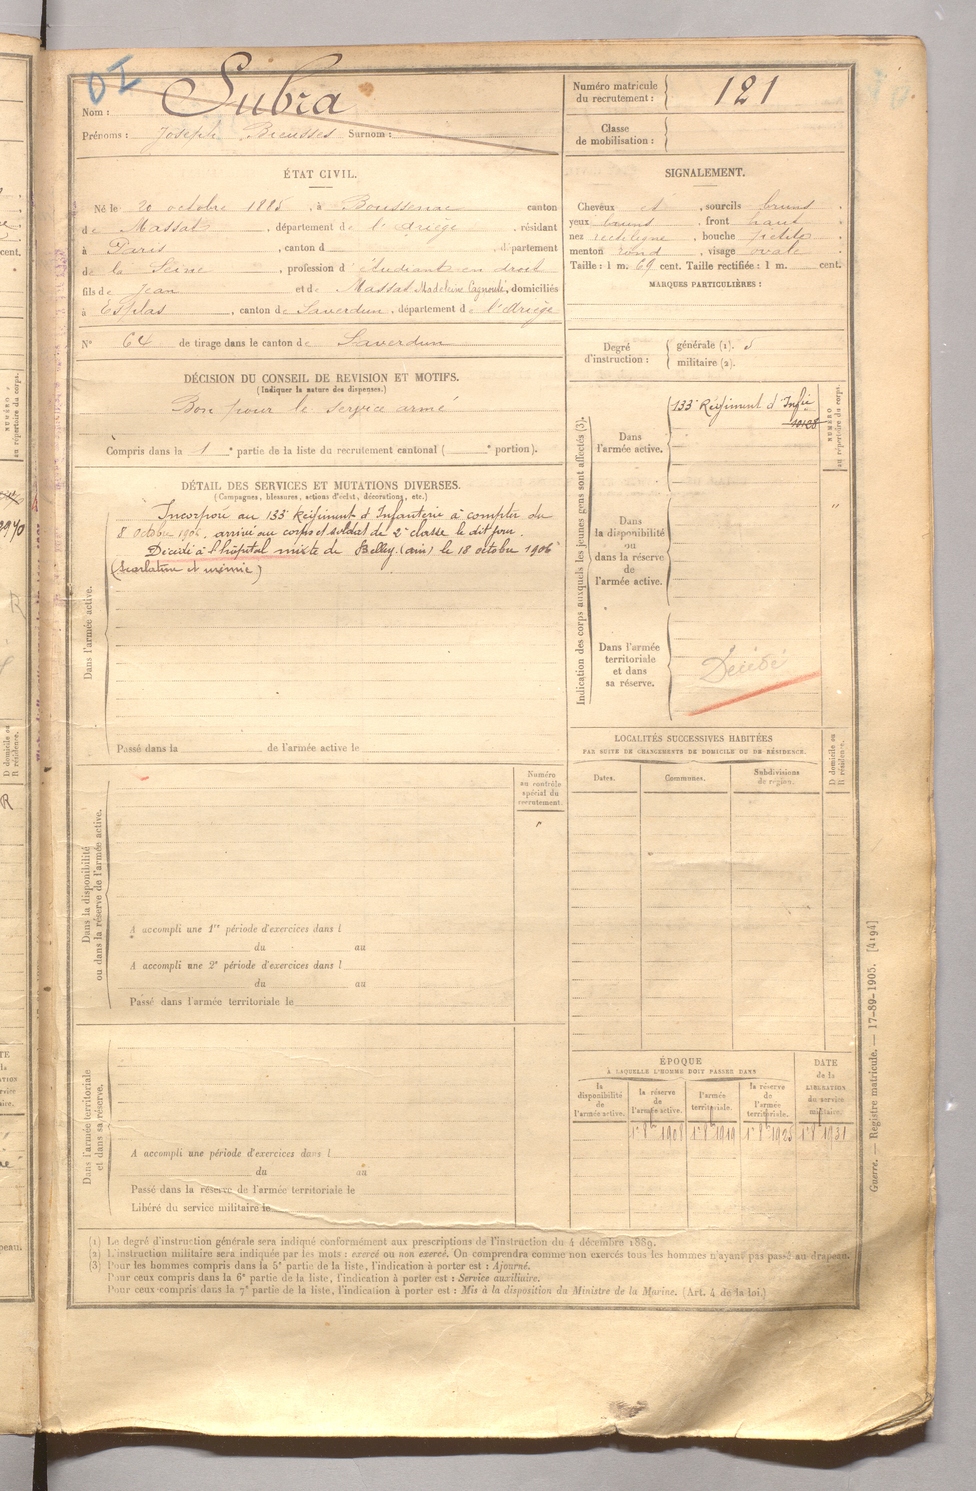 OI
Nom : Subra
Prénoms : Joseph Surnom :
Numéro matricule
du recrutement : 121
Classe
de mobilisation :
ÉTAT CIVIL.
Né le 20 octobre 1885, à Boussenac canton
de Massat, département de l'Ariège, résidant
à Paris, canton d , département
de la Seine, profession d'étudiant en droit
fils de Jean et de Massat Madeleine Cagnoulé, domiciliés
à Esplas, canton de Saverdun, département de l'Ariège
N° 64 de tirage dans le canton de Saverdun
SIGNALEMENT.
Cheveux et , sourcils bruns
yeux bruns , front haut
nez rectiligne , bouche petite
menton rond , visage ovale
Taille : 1 m. 69 cent. Taille rectifiée : 1 m. cent.
MARQUES PARTICULIÈRES :
Degré
d'instruction :
générale (1).
militaire (2).
DÉCISION DU CONSEIL DE REVISION ET MOTIFS.
(Indiquer la nature des dispenses.)
Bon pour le service armé
Compris dans la 1 e partie de la liste du recrutement cantonal ( e portion).
DÉTAIL DES SERVICES ET MUTATIONS DIVERSES.
(Campagnes, blessures, actions d'éclat, décorations, etc.)
Incorporé au 133e Régiment d'Infanterie à compter du
8 Octobre 1906, arrivé au corps et soldat de 2e classe le dit jour.
Décédé à l'hôpital mixte de Belley (ain) le 18 octobre 1906
(Scarlatine et urémie)
Dans l'armée active.
Passé dans la de l'armée active le
Indication des corps auxquels les jeunes gens sont affectés (3).
Dans
l'armée active.
133e Régiment d'Infie
10108
NUMÉRO
au répertoire du corps.
Dans
la disponibilité
ou
dans la réserve
de
l'armée active.
Dans l'armée
territoriale
et dans
sa réserve.
Décédé
LOCALITÉS SUCCESSIVES HABITÉES
PAR SUITE DE CHANGEMENTS DE DOMICILE OU DE RÉSIDENCE.
Dates. Communes. Subdivisions
de région.
D domicile ou
R résidence.
Numéro
au contrôle
spécial du
recrutement.
Dans la disponibilité
ou dans la réserve de l'armée active.
A accompli une 1re période d'exercices dans l
du au
A accompli une 2e période d'exercices dans l
du au
Passé dans l'armée territoriale le
Dans l'armée territoriale
et dans sa réserve.
A accompli une période d'exercices dans l
du au
Passé dans la réserve de l'armée territoriale le
Libéré du service militaire le
ÉPOQUE
À LAQUELLE L'HOMME DOIT PASSER DANS
la
disponibilité
de
l'armée active.
la réserve
de
l'armée active.
l'armée
territoriale.
la réserve
de
l'armée
territoriale.
DATE
de la
LIBÉRATION
du service
militaire.
1er 8bre 1908 1er 8bre 1919 1er 8bre 1925 1er 8bre 1931
Guerre. — Registre matricule. — 17-89-1905. [4194]
(1) Le degré d'instruction générale sera indiqué conformément aux prescriptions de l'instruction du 4 décembre 1889.
(2) L'instruction militaire sera indiquée par les mots : exercé ou non exercé. On comprendra comme non exercés tous les hommes n'ayant pas passé au drapeau.
(3) Pour les hommes compris dans la 5e partie de la liste, l'indication à porter est : Ajourné.
Pour ceux compris dans la 6e partie de la liste, l'indication à porter est : Service auxiliaire.
Pour ceux compris dans la 7e partie de la liste, l'indication à porter est : Mis à la disposition du Ministre de la Marine. (Art. 4 de la loi.)